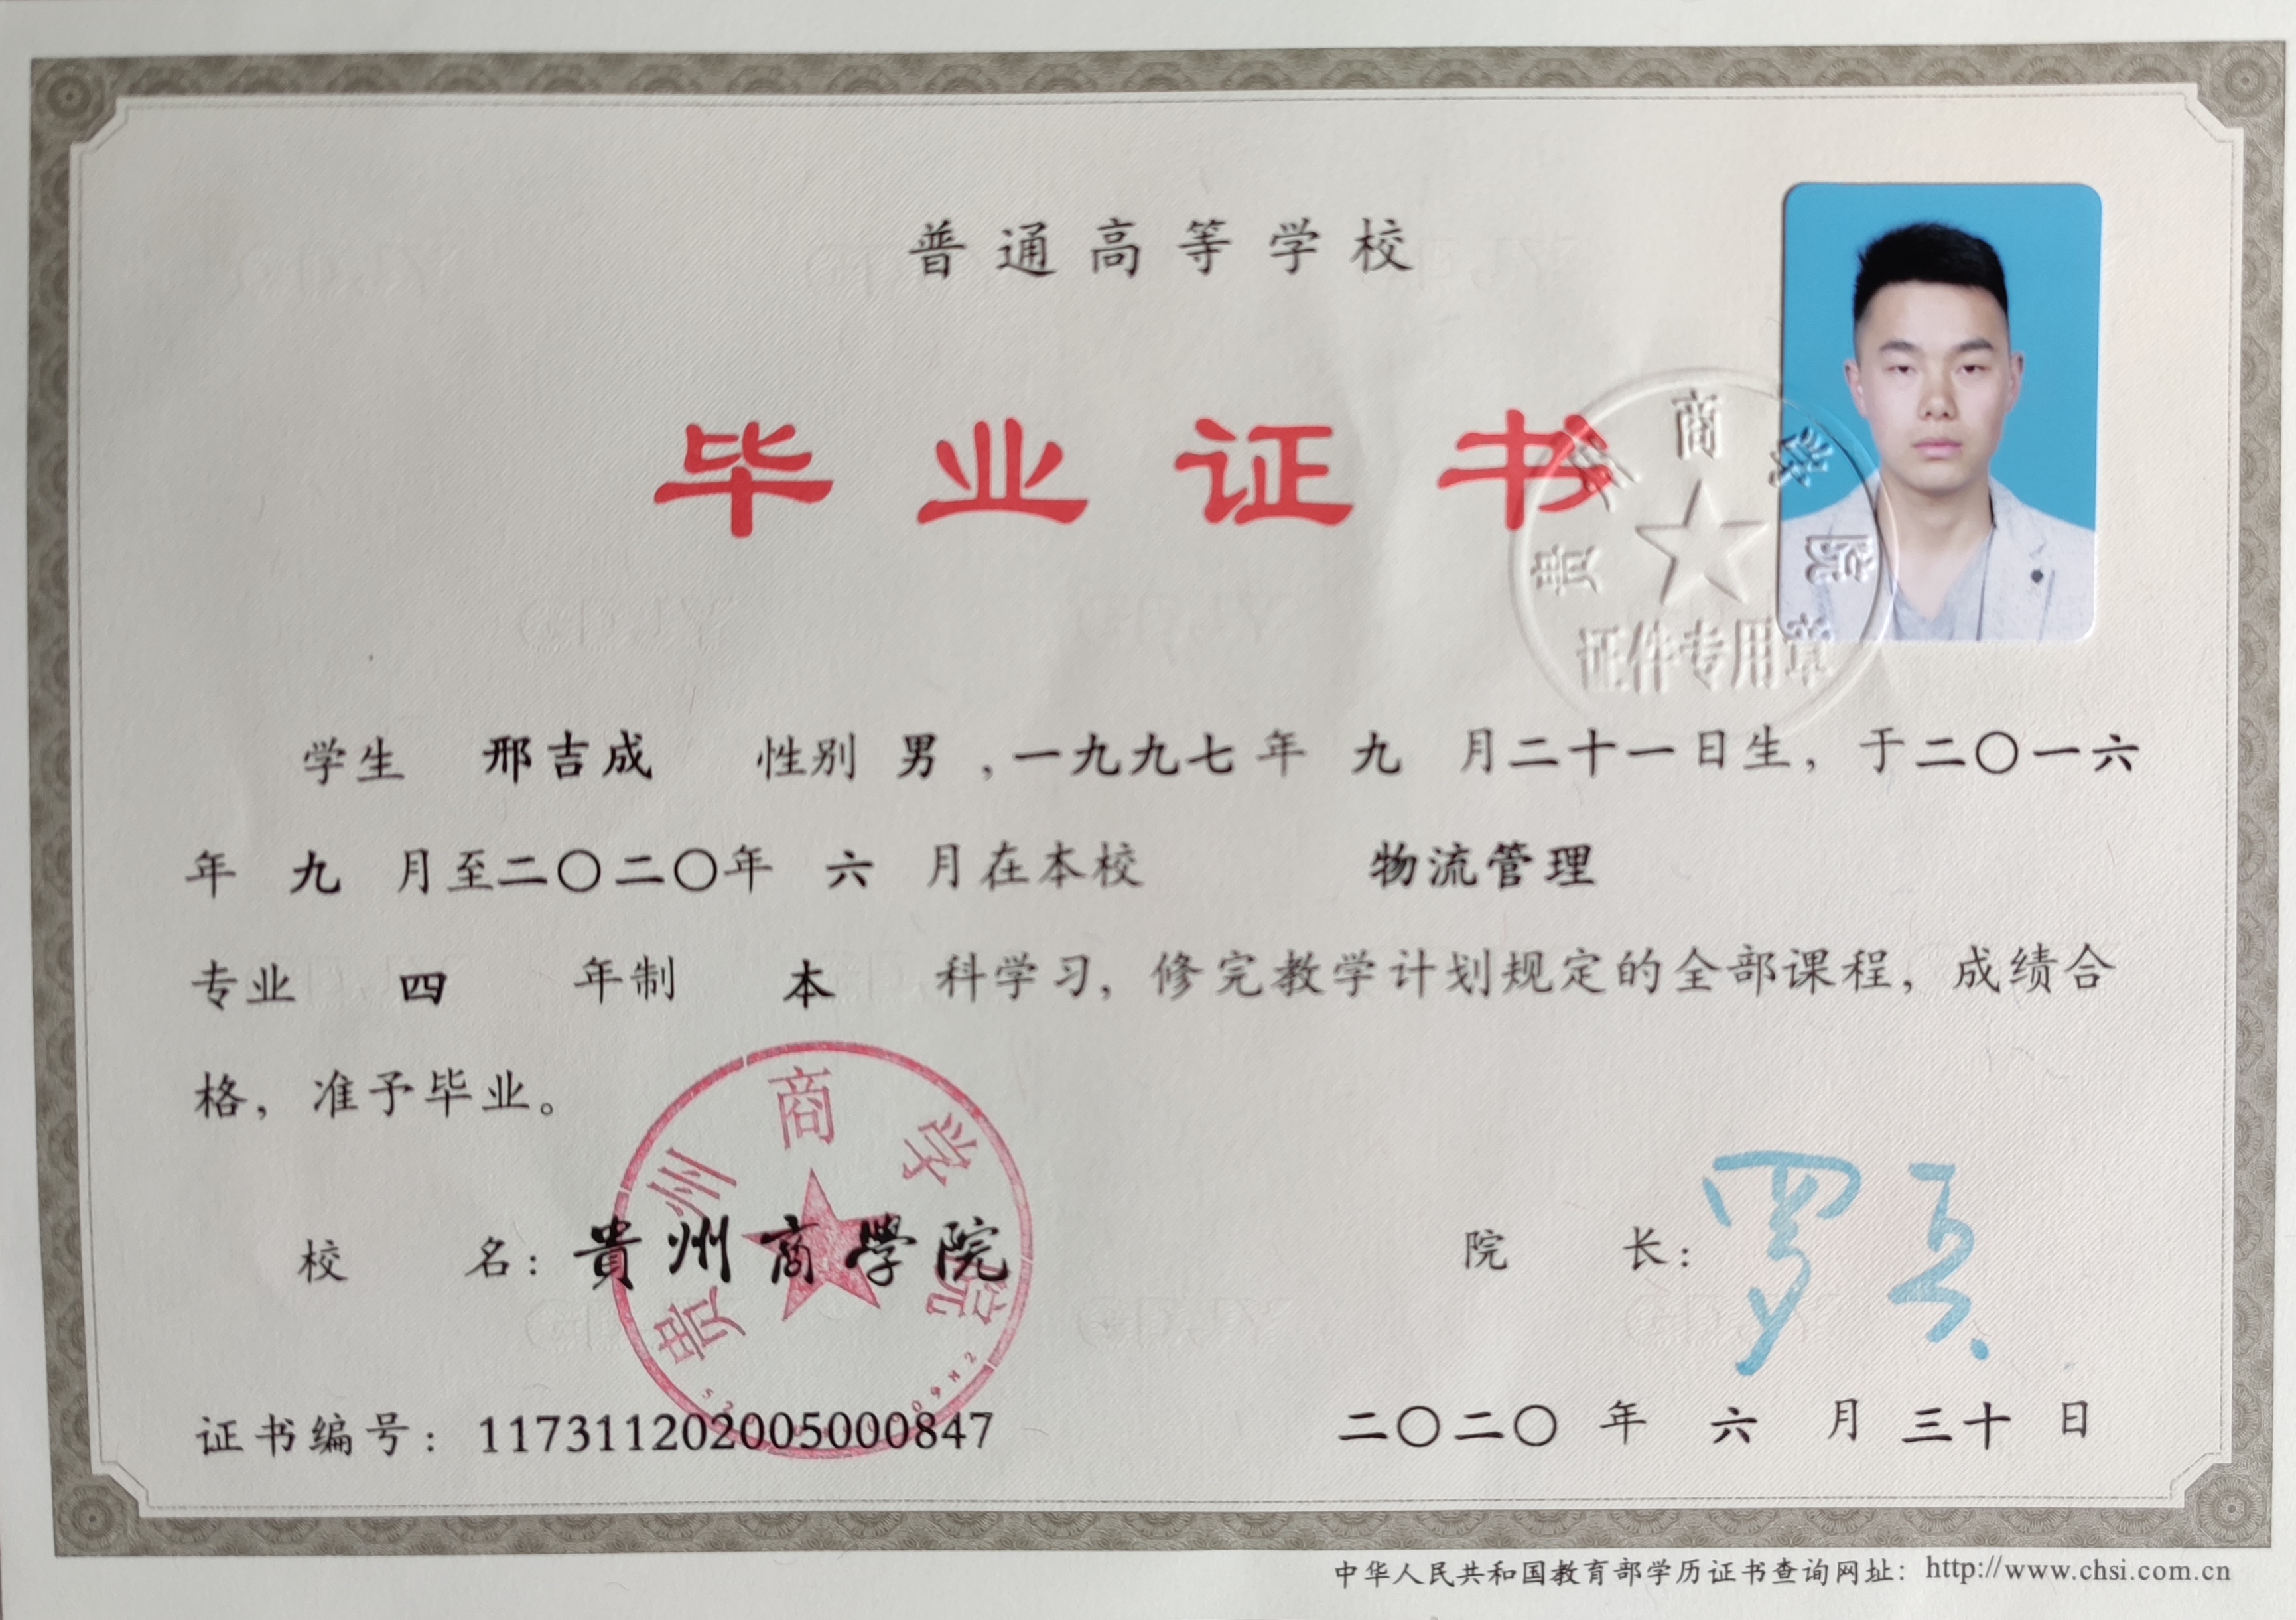 普通高等学校
毕业证书
贵州商学院
证件专用章
学生 邢吉成 性别 男 ，一九九七年 九 月二十一日生，于二〇一六
年 九 月至二〇二〇年 六 月在本校 物流管理
专业 四 年制 本 科学习，修完教学计划规定的全部课程，成绩合
格，准予毕业。
贵州商学院
校 名：貴州商學院
院 长：
证书编号：117311202005000847
二〇二〇 年 六 月 三十 日
中华人民共和国教育部学历证书查询网址：http://www.chsi.com.cn